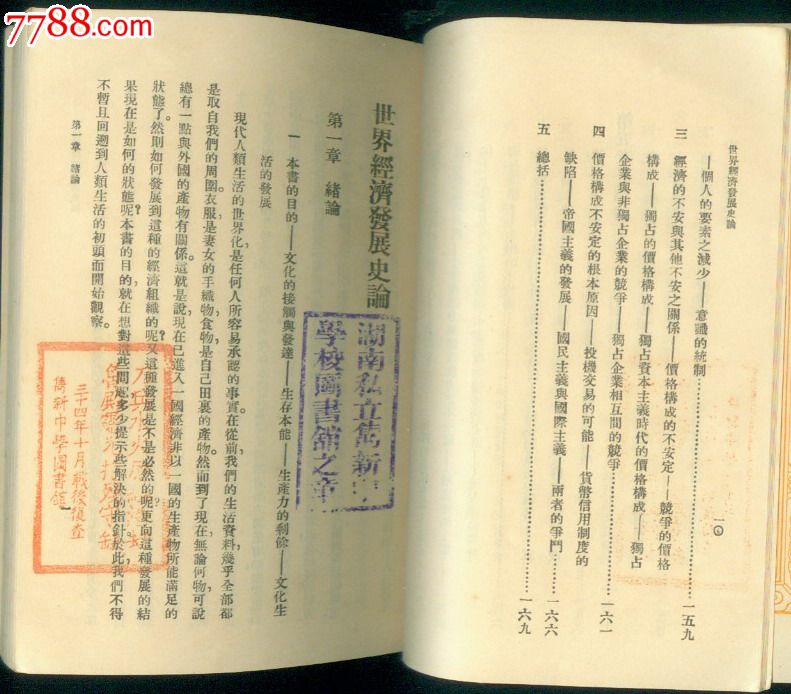 7788.com
世界經濟發展史論
一〇
——個人的要素之減少——意識的統制……一五九
三 經濟的不安與其他不安之關係——價格構成的不安定——競爭的價格
構成——獨占的價格構成——獨占資本主義時代的價格構成——獨占
企業與非獨占企業的競爭——獨占企業相互間的競爭……一六一
四 價格構成不安定的根本原因——投機交易的可能——貨幣信用制度的
缺陷——帝國主義的發展——國民主義與國際主義——兩者的爭鬥……一六六
五 總括……一六九
世界經濟發展史論
第一章 緒論
一 本書的目的——文化的接觸與發達——生存本能——生產力的剩餘——文化生
活的發展
現代人類生活的世界化，是任何人所容易承認的事實。在從前，我們的生活資料幾乎全部都
是取自我們的周圍。衣服是妻女的手織物，食物是自己田裏的產物。然而到了現在，無論何物，可說
總有一點與外國的產物有關係。這就是說，現在已進入一國經濟非以一國的生產物所能滿足的
狀態了。然則如何發展到這種的經濟組織的呢？又這種發展是不是必然的呢？更向這種發展的結
果現在是如何的狀態呢？本書的目的，就在想對這些問題多少提示些解決的指針。於此，我們不得
不暫且回溯到人類生活的初頭而開始觀察。
第一章 緒論
湖南私立雋新中
學校圖書館之章
三十四年十月戰後復查
雋新中學圖書館